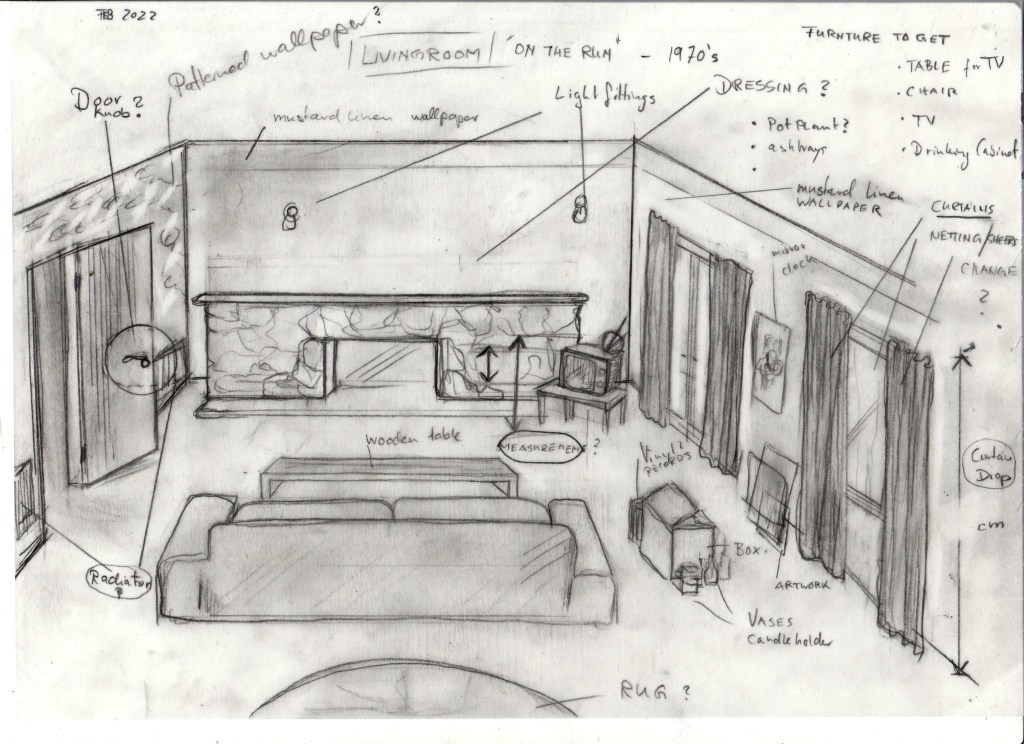 FEB 2022
Patterned wallpaper?
LIVINGROOM "ON THE RUN" - 1970's
FURNTURE TO GET
• TABLE for TV
• CHAIR
• TV
• Drinking Cabinet
Door
knob?
mustard linen wallpaper
Light fittings
DRESSING ?
• Pot Plant?
• ashtrays
•
mustard linen
WALLPAPER
CURTAINS
NETTING/SHEERS
CHANGE
?
mirror
clock
wooden table
MEASUREMENT ?
Vinyl?
RECORDS
Curtain
Drop
cm
Radiator
?
BOX.
ARTWORK
VASES
Candleholder
RUG ?